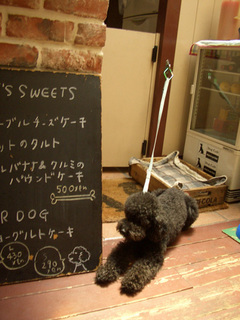 'S SWEETS
ーグルチーズケーキ
ットのタルト
ルバナナ&クルミの
パウンドケーキ
500yen
R DOG
ーグルトケーキ
L
430
yen
S
290
yen